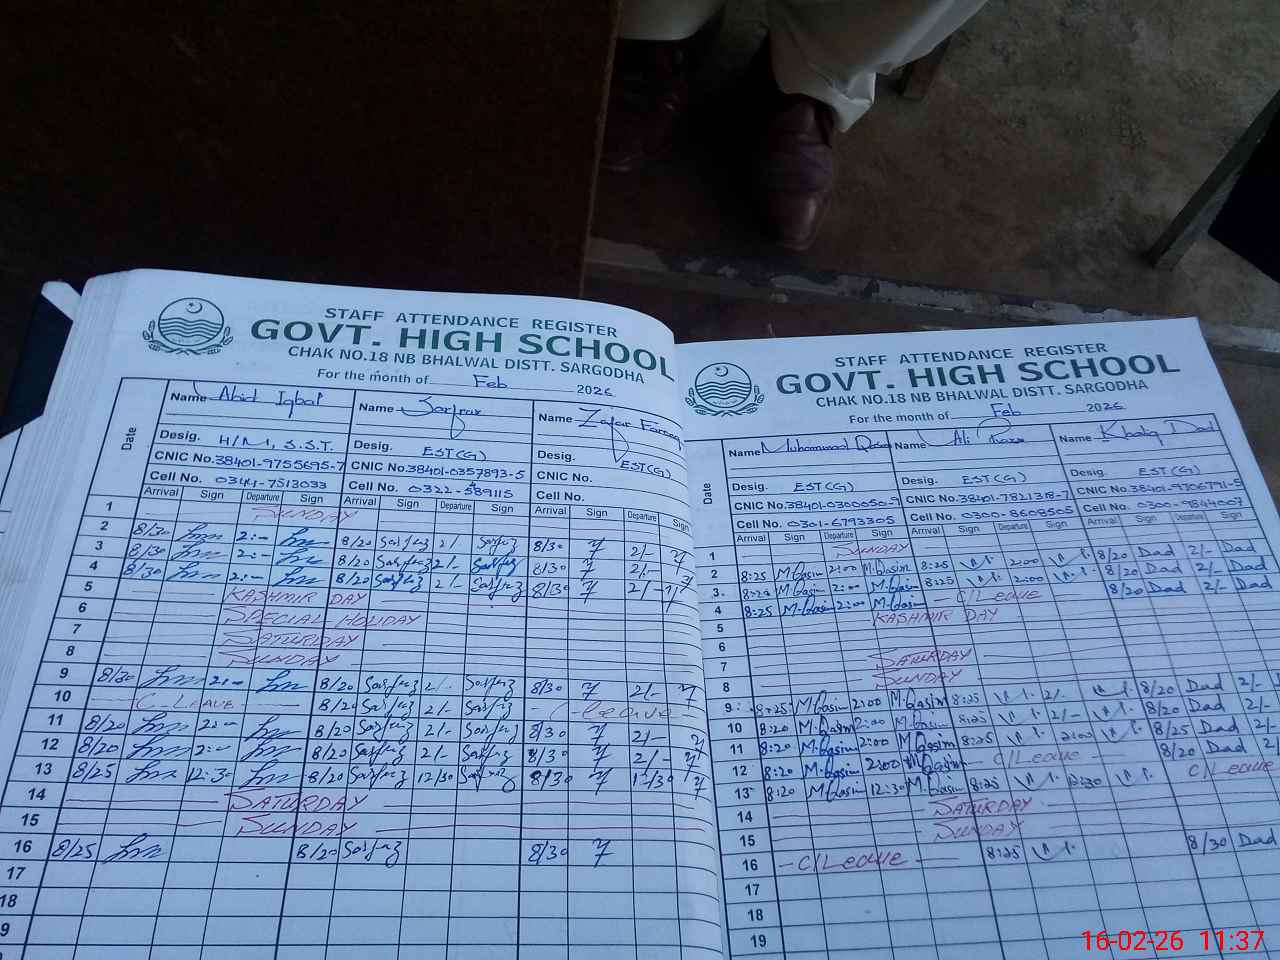 STAFF ATTENDANCE REGISTER
GOVT. HIGH SCHOOL
CHAK NO.18 NB BHALWAL DISTT. SARGODHA
For the month of Feb 2026
Date
Name Abid Iqbal Name Sarfraz Name Zafar Farooq
Desig. H/M, S.S.T. Desig. EST(G) Desig. EST(G)
CNIC No.38401-9755695-7 CNIC No.38401-0357893-5 CNIC No.
Cell No. 0344-7513033 Cell No. 0322-589115 Cell No.
Arrival Sign Departure Sign Arrival Sign Departure Sign Arrival Sign Departure Sign
1 SUNDAY
2 8/30 2:- 8/20 Sarfraz 2/- Sarfraz 8/30 2/-
3 8/30 2:- 8/20 Sarfraz 2/- Sarfraz 8/30 2/-
4 8/30 2:- 8/20 Sarfraz 2/- Sarfraz 8/30 2/-
5 KASHMIR DAY
6 SPECIAL HOLIDAY
7 SATURDAY
8 SUNDAY
9 8/30 2:- 8/20 Sarfraz 2/- Sarfraz 8/30 2/-
10 C. LEAVE 8/20 Sarfraz 2/- Sarfraz C-leave
11 8/20 2:- 8/20 Sarfraz 2/- Sarfraz 8/30 2/-
12 8/20 2:- 8/20 Sarfraz 2/- Sarfraz 8/30 2/-
13 8/25 12:30 8/20 Sarfraz 12/30 Sarfraz 8/30
14 SATURDAY
15 SUNDAY
16 8/25 8/20 Sarfraz 8/30
17
18
9
STAFF ATTENDANCE REGISTER
GOVT. HIGH SCHOOL
CHAK NO.18 NB BHALWAL DISTT. SARGODHA
For the month of Feb 2026
Date
Name Muhammad Qasim Name Ali Name Khaliq Dad
Desig. EST(G) Desig. EST(G) Desig. EST(G)
CNIC No.38401-0300050-9 CNIC No.38401-7821318-7 CNIC No.38401-9706791-5
Cell No. 0301-6793305 Cell No. 0300-8608505 Cell No. 0300-9844007
Arrival Sign Departure Sign Arrival Sign Departure Sign Arrival Sign Departure Sign
1 SUNDAY
2 8:25 M.Qasim 2:00 M.Qasim 8:25 2:00 8/20 Dad 2/- Dad
3 M.Qasim 2:00 M.Qasim 8:25 2:00 8/20 Dad 2/- Dad
4 8:25 M.Qasim 2:00 M.Qasim C/Leave 8/20 Dad 2/- Dad
5 KASHMIR DAY
6
7 SATURDAY
8 SUNDAY
9 8:25 M.Qasim 2:00 M.Qasim 8:25 2/- 8/20 Dad 2/-
10 8:20 M.Qasim 2:00 M.Qasim 8:25 2/- 8/20 Dad 2/-
11 8:20 M.Qasim 2:00 M.Qasim 8:25 2:00 8/25 Dad 2/-
12 8:20 M.Qasim 2:00 M.Qasim C/Leave 8/20 Dad 2/-
13 8:20 M.Qasim 12:30 M.Qasim 8:25 12:30 C/Leave
14 SATURDAY
15 SUNDAY
16 C/Leave 8:25 8/30 Dad
17
18
19
16-02-26 11:37